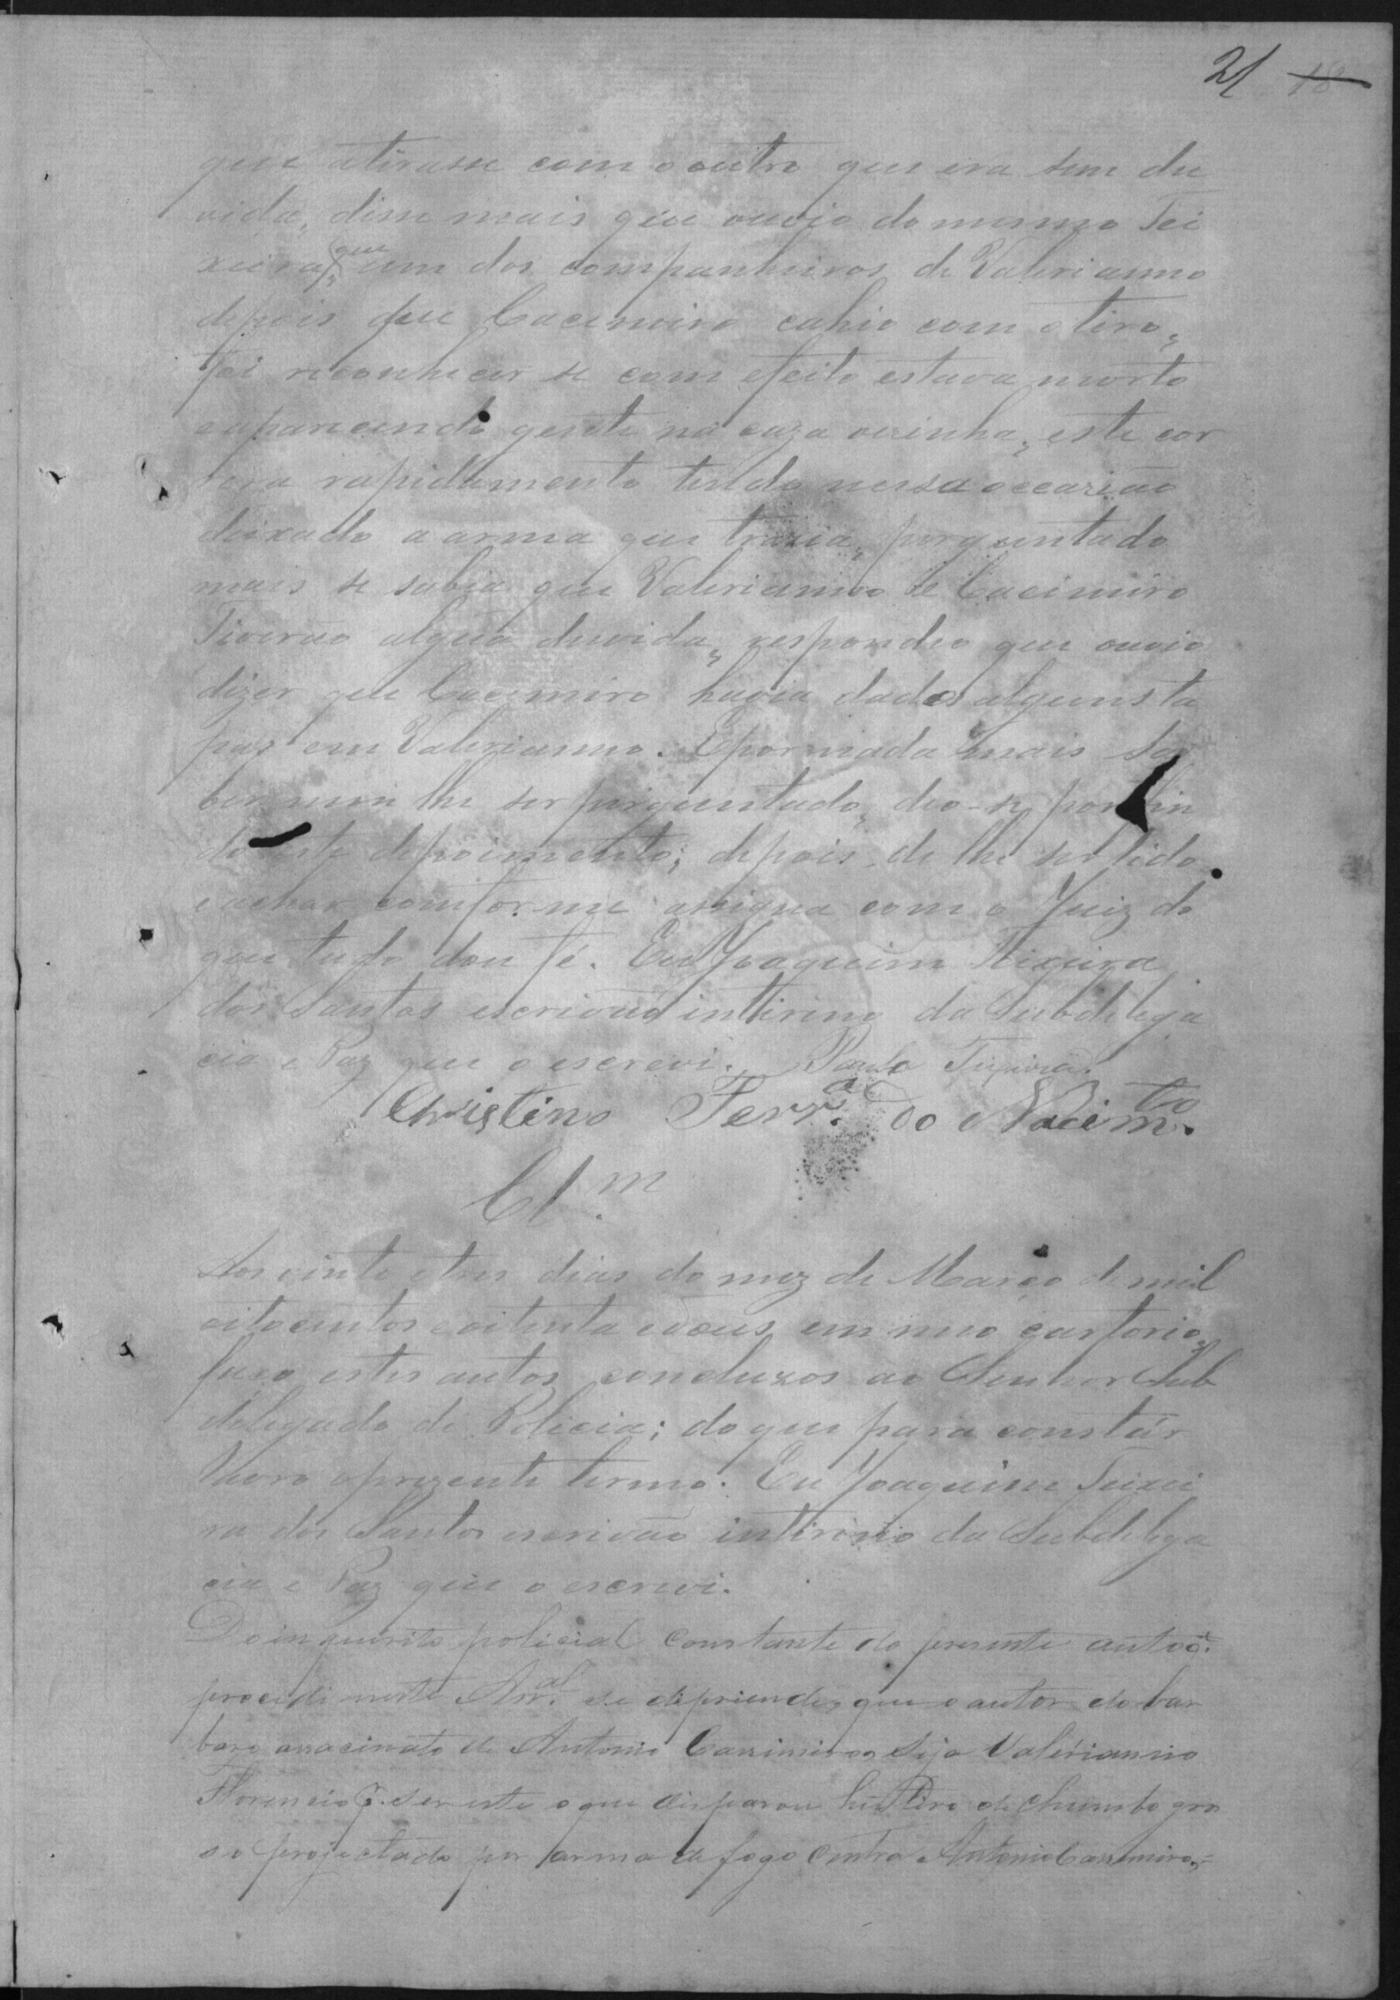 21 18
que atirasse com o outro que era sem du
vida, disse mais que ouvio do mesmo Tei
xeira, que um dos companheiros de Valerianno
depois que Cacemiro cahio com o tiro,
foi reconhecer se com efeito estava morto
eaparecendo gente na caza vizinha, este cor
rera rapidamente tendo nessa occazião
deixado a arma que trazia, perguntado
mais se sabia que Valerianno e Cacimiro
Tiverão algũa duvida, respondeo que ouvio
dizer que Cacemiro havia dados alguns ta
pas em Valerianno. E por nada mais sa
ber nem lhe ser perguntado, deo-se por fin
do este depoimento; depois de lhe ser lido
eachar conforme assigna com o Juiz do
que tudo dou fé. Eu Joaquim Teixeira
dos Santos escrivão intirino da Subdelega
cia e Paz que o escrevi. Paula Teixeira
Christino Ferr.ª do Nacim.to
Cl.m
Aos vinte e tres dias do mez de Março de mil
oitocentos e oitenta e dous em meo cartorio,
faço estes autos concluzos ao Senhor Sub
delegado de Policia; do que para constár
lavro oprezente termo. Eu Joaquim Teixei
ra dos Santos escrivão intirino da Subdelega
cia e Paz que o escrevi.
Do inquerito policial constante do presente auto
procedimento se depriende, que o autor do bar
baro assacinato de Antonio Cassimiro, seja Valérianno
Florencio p.r ser este o que disparou hũ tiro de chumbo gros
so projectado por arma de fogo contra Antonio Cassimiro,=